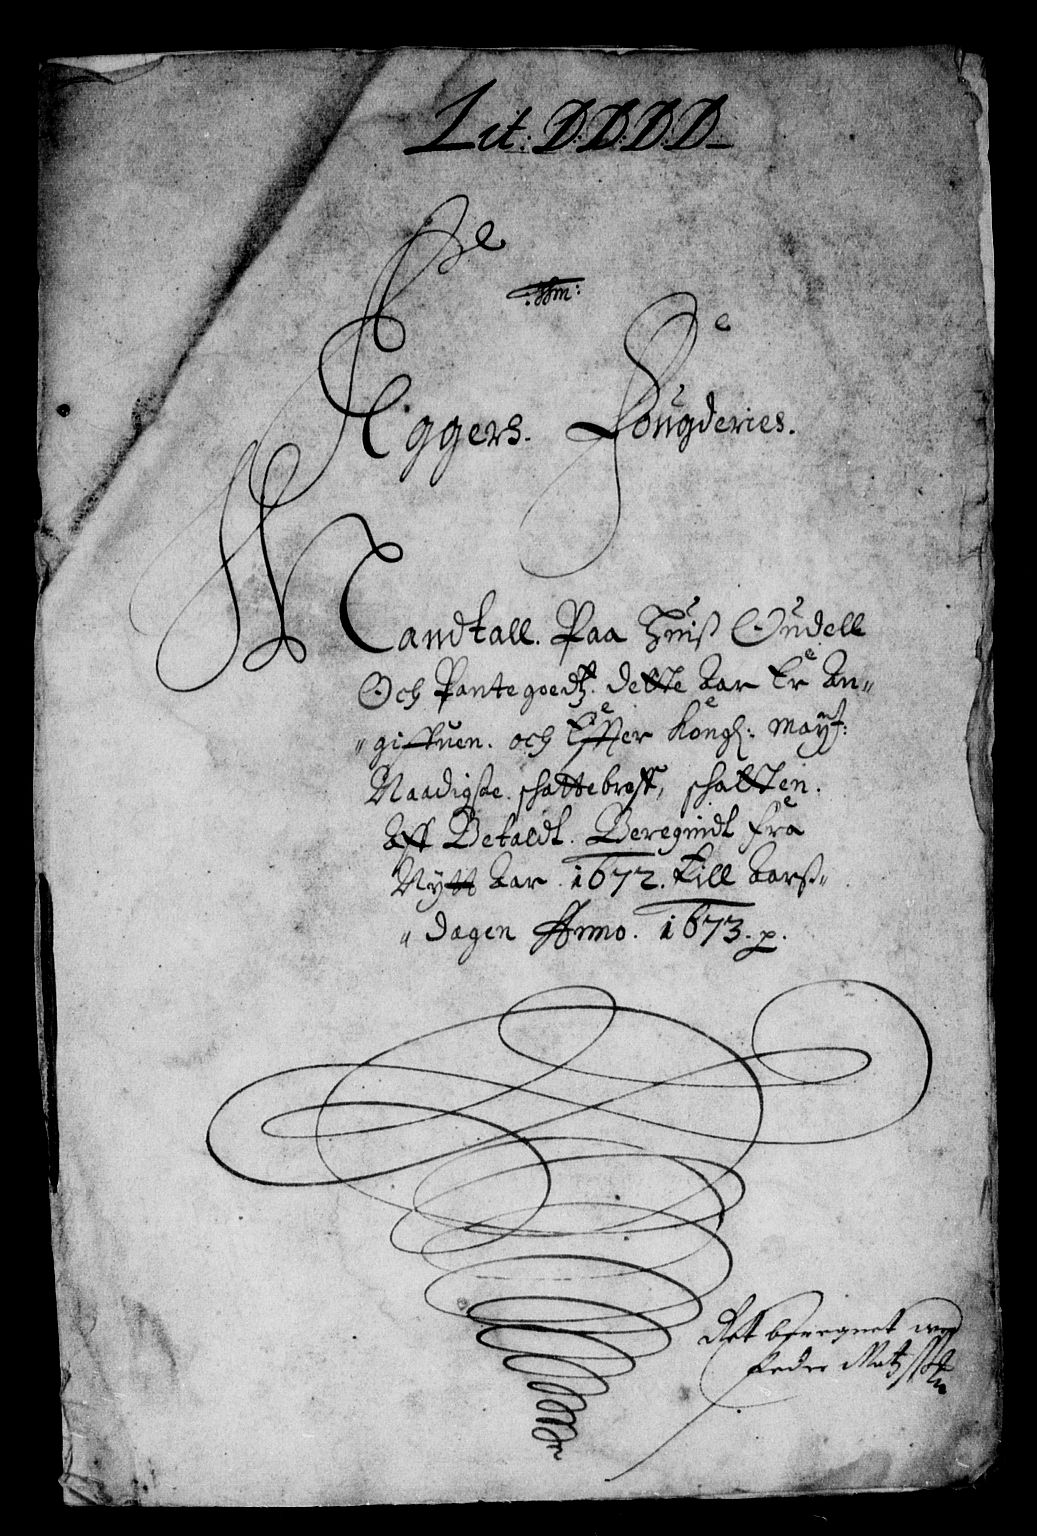 Lit. DDDD
Eggers. Fougderies.
Mandtall. Paa Huis Oudell
Och Pantegoedtz. dette Aar Er An„
„ giffuen. och Effter Kongl: mayt:
Naadigste. schattebreff, schatten.
Aff Betaldt. Beregindt fra
Nytt Aar. 1672. till Aars„
„ dagen Anno. 1673. p.
Ret beregnet
Peder